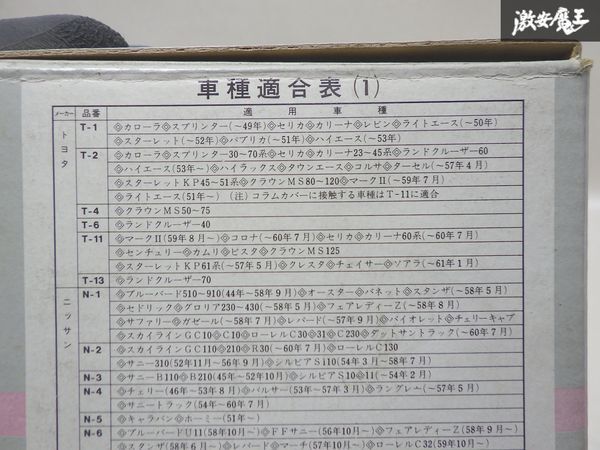 激安魔王
車種適合表(1)
メーカー 品番 適用車種
トヨタ
T-1 ◈カローラ◈スプリンター(〜49年)◈セリカ◈カリーナ◈レビン◈ライトエース(〜50年)
◈スターレット(〜52年)◈パブリカ(〜51年)◈ハイエース(〜53年)
T-2 ◈カローラ◈スプリンター30~70系◈セリカ◈カリーナ23~45系◈ランドクルーザー60
◈ハイエース(53年〜)◈ハイラックス◈タウンエース◈コルサ◈ターセル(〜57年4月)
◈スターレットKP45~51系◈クラウンMS80~120◈マークII(〜59年7月)
◈ライトエース(51年〜) (注)コラムカバーに接触する車種はT-11に適合
T-4 ◈クラウンMS50~75
T-6 ◈ランドクルーザー40
T-11 ◈マークII(59年8月〜)◈コロナ(〜60年7月)◈セリカ◈カリーナ60系(〜60年7月)
◈センチェリー◈カムリ◈ビスタ◈クラウンMS125
◈スターレットKP61系(〜57年5月)◈クレスタ◈チェイサー◈ソアラ(〜61年1月)
T-13 ◈ランドクルーザー70
ニッサン
N-1 ◈ブルーバード510~910(44年〜58年9月)◈オースター◈バネット◈スタンザ(〜58年5月)
◈セドリック◈グロリア230~430(〜58年5月)◈フェアレディーZ(〜58年8月)
◈サファリー◈ガゼール(〜58年7月)◈レパード(〜57年9月)◈バイオレット◈チェリーキャブ
◈スカイラインGC10◈C10◈ローレルC30◈31◈C230◈ダットサントラック(〜60年7月)
N-2 ◈スカイラインGC110◈210◈R30(〜60年7月)◈ローレルC130
◈サニー310(52年11月〜56年9月)◈シルビアS110(54年3月〜58年7月)
N-3 ◈サニーB110◈B210(45年〜52年10月)◈シルビアS10◈11(〜54年2月)
N-4 ◈チェリー(46年〜53年8月)◈パルサー(53年〜57年3月)◈ラングレー(〜57年5月)
◈サニートラック(54年〜60年7月)
N-5 ◈キャラバン◈ホーミー(51年〜)
N-6 ◈ブルーバードU11(58年10月〜)◈FFサニー(56年10月〜)◈フェアレディーZ(58年9月〜)
◈スタンザ(58年6月〜)◈レパード◈マーチ(57年10月〜)◈ローレルC32(59年10月〜)